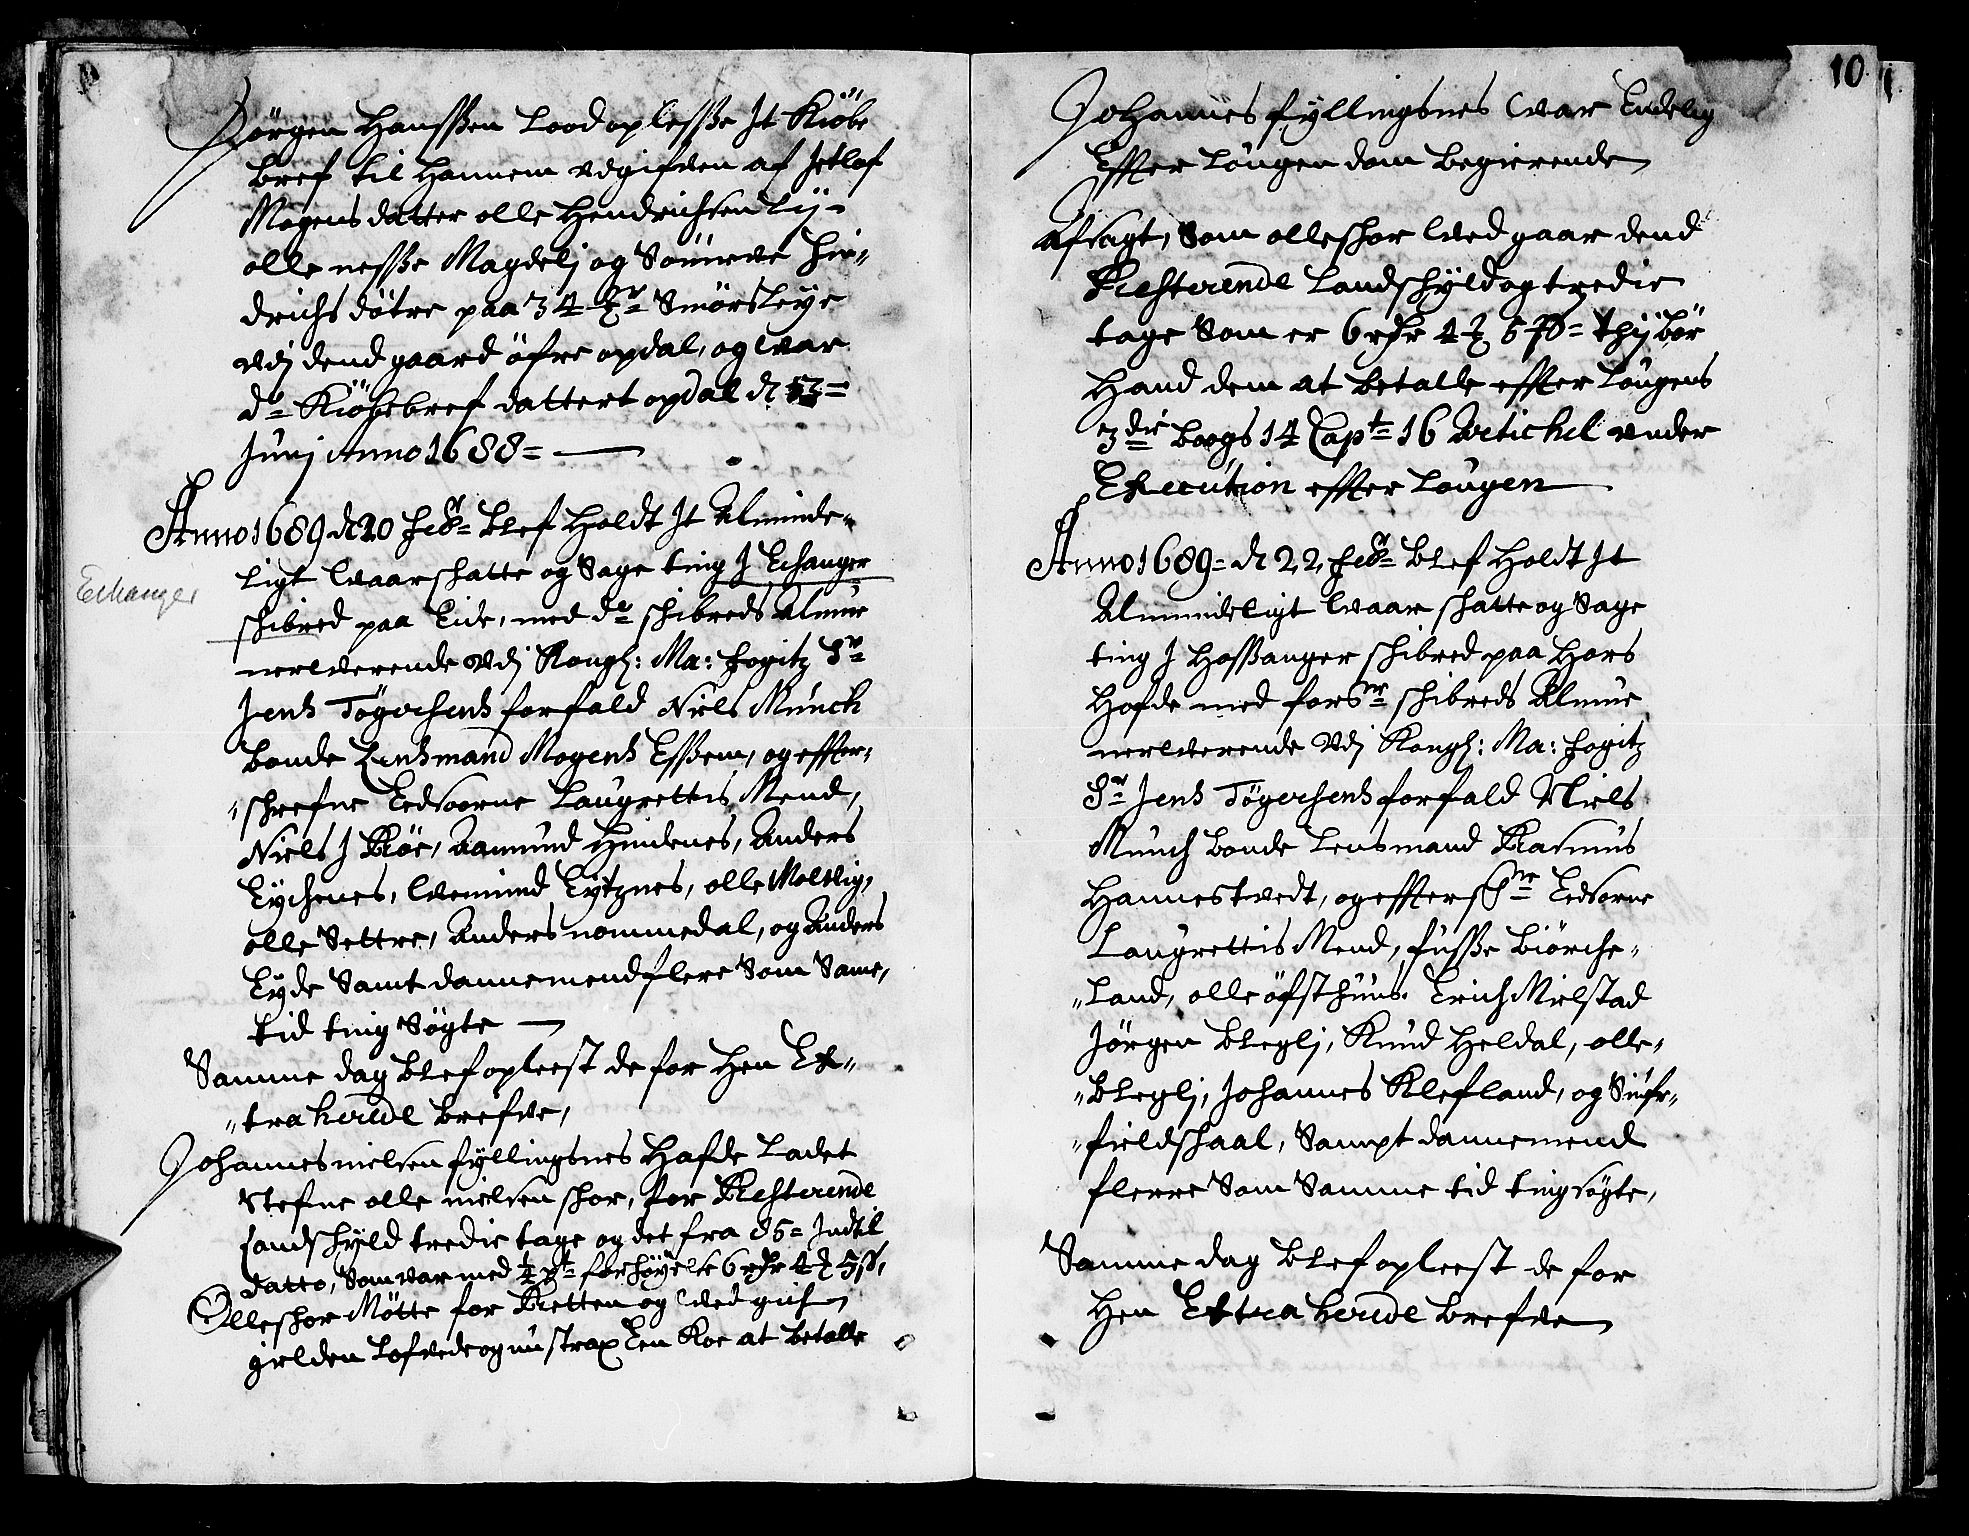 Jörgen Hanssen Lood oplesse It Kiöbe
bref til hannem udgifven af Jetlof
Mogens datter olle Hendrichsen Lij
olle nesse Magdelj og Sønneve Hin„
drichs dötre paa 3 4 Smörs leye
udj dend gaard öfre opdal, og war
de Kiöbebref dattert opdal d
Junj Anno 1688 =
Anno 1689 d 20 feb: blef holdt It Alminde„
ligt Waarschatte og Sage ting J Echanger
schibred paa Eide, med de schibreds Almue
nerverende udj Kongl: Ma: fogitz Sr
Jens Tögersens forfald Niels Munch
bonde Lensmand Mogens Essem, og effter„
„schrefne Eedsorne Laugrettis Mend,
Niels J Röe, Aamund Hindenes, Anders
Eychenes, Wemund Eytznes, olle Molvig,
olle Settre, Anders nommedal, og Anders
Eyde Samt dannemend flere Som Same„
tid ting Søgte
Echanger
Samme dag blef opleest de for hen Ex„
„traherede brefve,
Johannes nielsen fyllingsnes Hafde Ladet
Stefne olle nielsen schor, for Resterende
Landschyld tredie tage og det fra 85 = Indtil
datto, Som var med 1/4 pt forhöyelse 6 rdr 4 5 s,
Olle schor Mötte for Retten og Wed gich
gielden Lofvede og nu strax Een Koe at betalle
10
Johannes fyllingsnes War Endelig
Effter Lougen dom begierende
Afsagt, Som olle schor Wed gaar dend
Resterende Landschyld og tredie
tage Som er 6 rdr 4 5 s = Thj bör
Hand dem at betalle effter Lougens
3die bogs 14 Capt 16 Artichel under
Execution effter Lougen
Anno 1689 = d 22 feb: blef holdt It
Almindeligt Waar schatte og Sage
ting J Hossanger schibred paa Hors
Hofde med forsr schibreds Almue
nerverende Udj Kongl: Ma: fogitz
Sr Jens Tögersens forfald Niels
Munch bonde Lensmand Rasmus
Hannestvedt, og effterschr Eedsorne
Laugrettis Mend, fusse Biörche„
„land, olle öfsthuus. Erich Mielstad
Jörgen bleglj, Knud Heldal, olle„
„bleglj, Johannes Klefland, og Siufr„
„fieldschaal, Sampt dannemend
flerre Som Samme tid ting søgte,
Samme dag blef opleest de for
hen Extraherede brefve